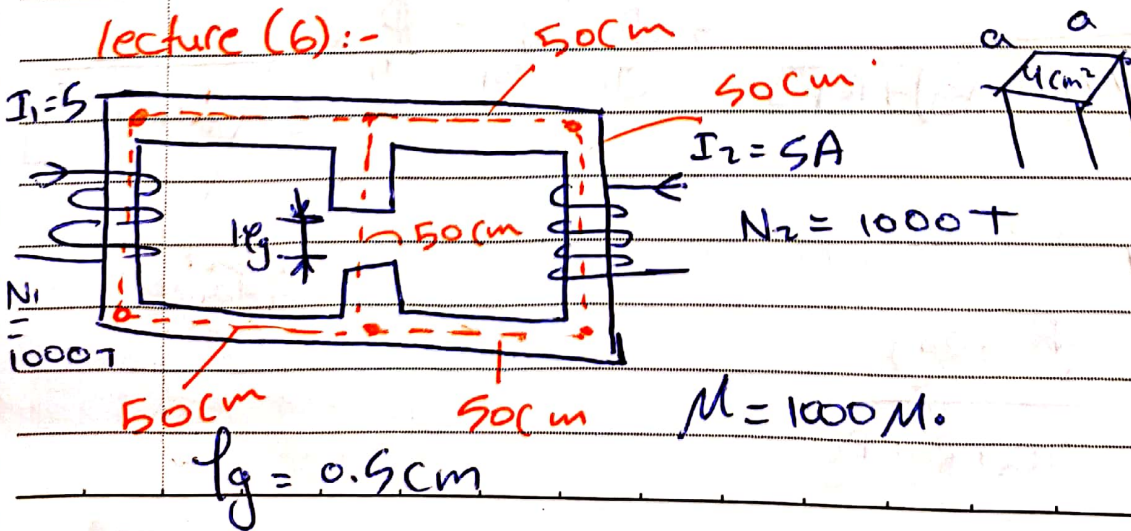 lecture (6):-
50cm
a a
4cm²
50cm
I₁=5
I₂=5A
N₂=1000T
lg
50cm
N₁
=
1000T
50cm
50cm
M=1000M.
lg=0.5cm